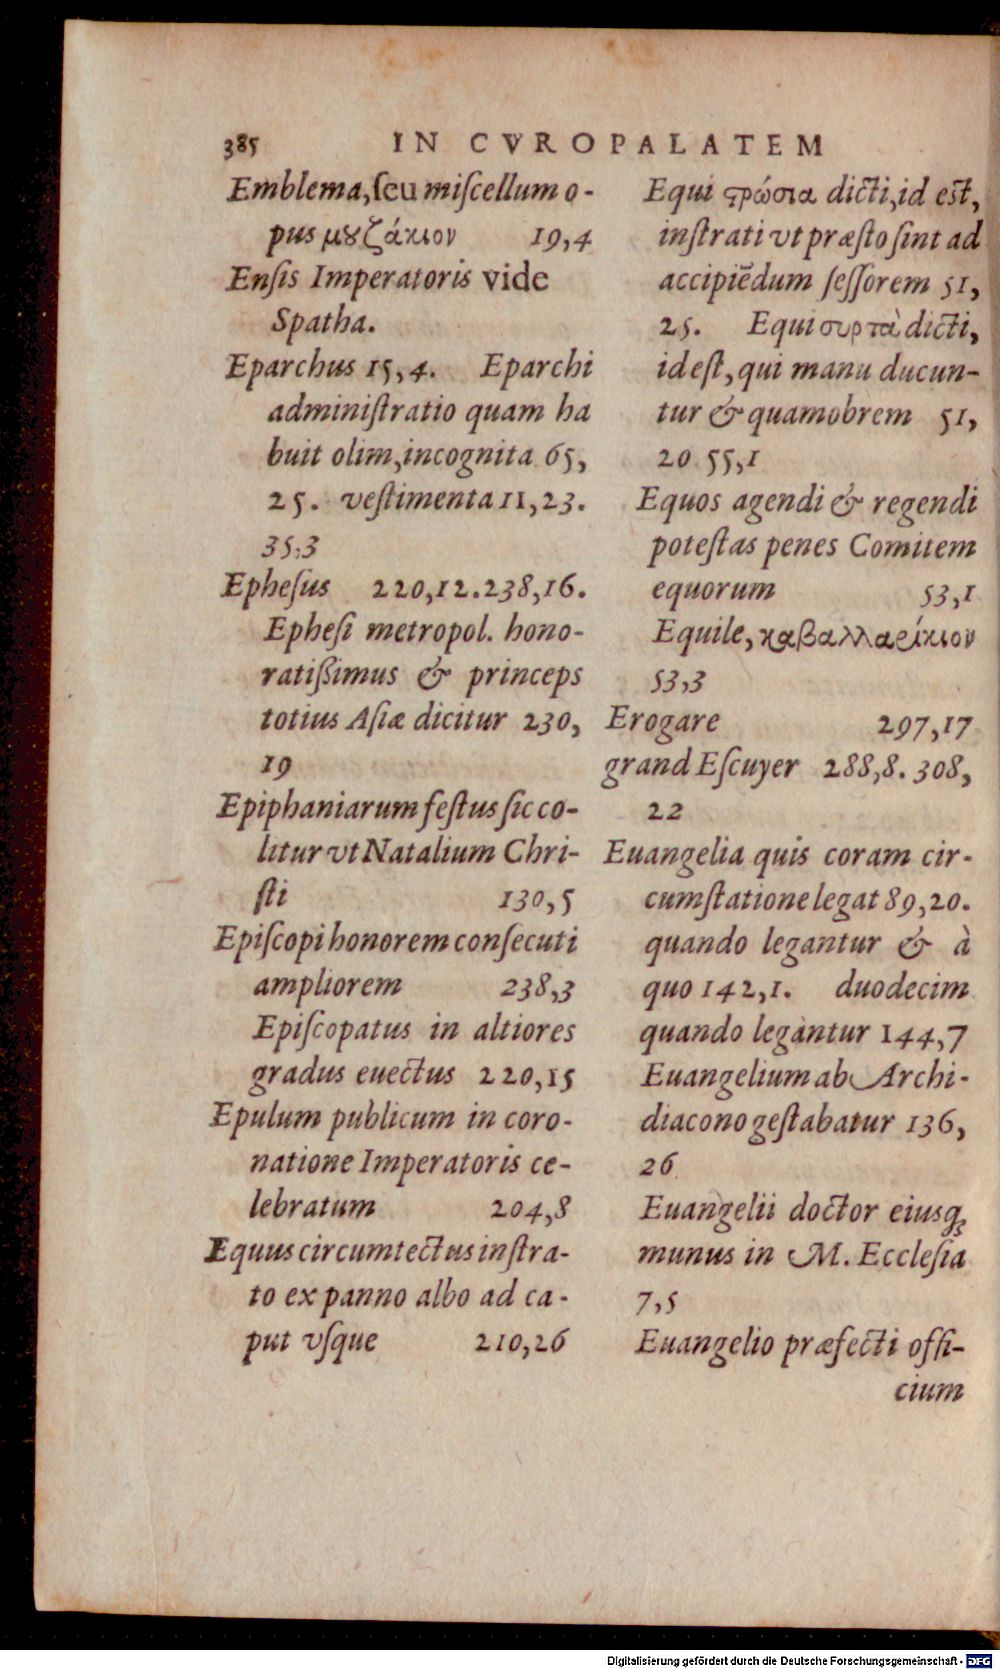 385 IN CVROPALATEM
Emblema, ſeu miſcellum o-
pus μυζάκιον 19,4
Enſis Imperatoris vide
Spatha.
Eparchus 15,4. Eparchi
adminiſtratio quam ha
buit olim, incognita 65,
25. veſtimenta 11,23.
35,3
Epheſus 220,12.238,16.
Epheſi metropol. hono-
ratißimus & princeps
totius Aſiæ dicitur 230,
19
Epiphaniarum feſtus ſic co-
litur vt Natalium Chri-
ſti 130,5
Epiſcopi honorem conſecuti
ampliorem 238,3
Epiſcopatus in altiores
gradus euectus 220,15
Epulum publicum in coro-
natione Imperatoris ce-
lebratum 204,8
Equus circumtectus inſtra-
to ex panno albo ad ca-
put vſque 210,26
Equi τρώσια dicti, id eſt,
inſtrati vt præſto ſint ad
accipiēdum ſeſſorem 51,
25. Equi συρτὰ dicti,
id eſt, qui manu ducun-
tur & quamobrem 51,
20 55,1
Equos agendi & regendi
poteſtas penes Comitem
equorum 53,1
Equile, καβαλλαρίκιον
53,3
Erogare 297,17
grand Eſcuyer 288,8. 308,
22
Euangelia quis coram cir-
cumſtatione legat 89,20.
quando legantur & à
quo 142,1. duodecim
quando legantur 144,7
Euangelium ab Archi-
diacono geſtabatur 136,
26
Euangelii doctor eiusq;
munus in M. Eccleſia
7,5
Euangelio præfecti offi-
cium
Digitalisierung gefördert durch die Deutsche Forschungsgemeinschaft - DFG